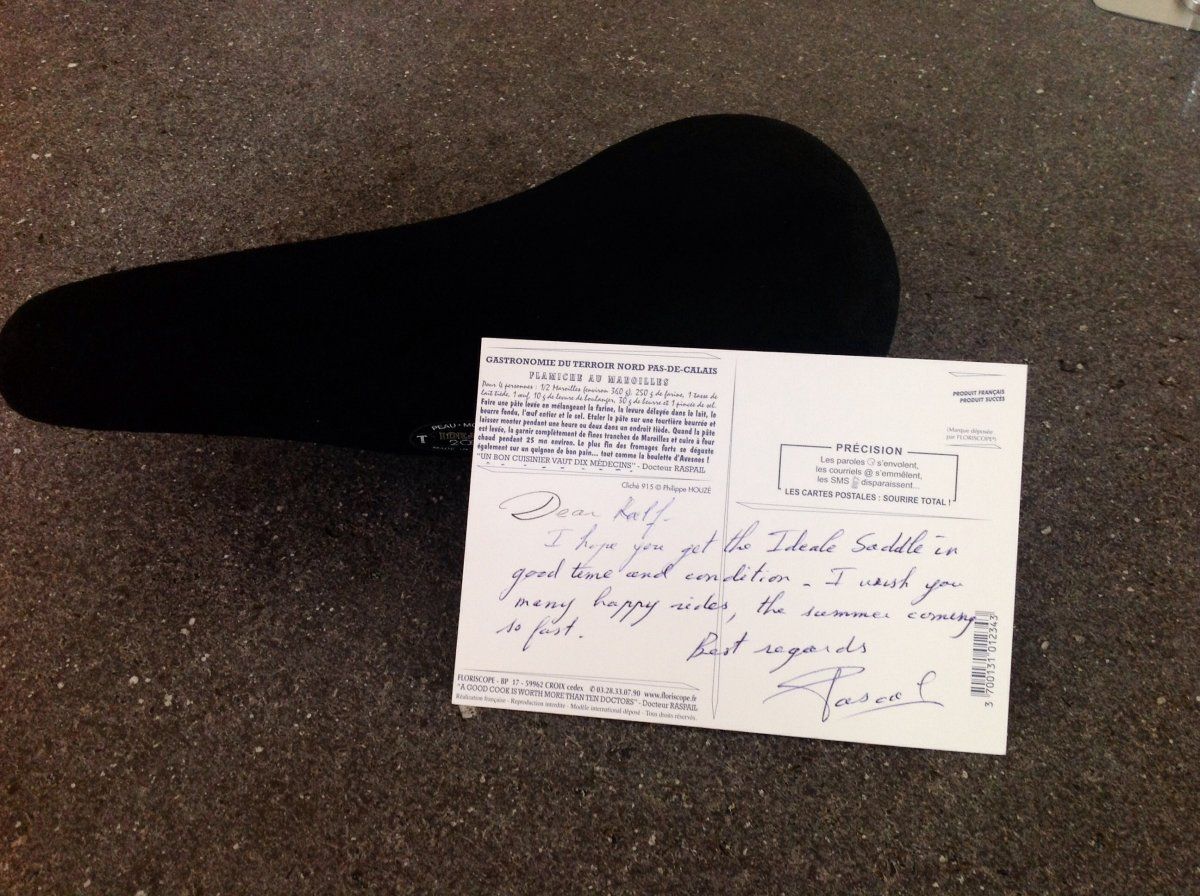 PEAU - MO
T
20
GASTRONOMIE DU TERROIR NORD PAS-DE-CALAIS
FLAMICHE AU MAROILLES
Pour 4 personnes : 1/2 Maroilles (environ 360 g), 250 g de farine, 1 tasse de
lait tiède, 1 œuf, 10 g de levure de boulanger, 30 g de beurre et 1 pincée de sel.
Faire une pâte levée en mélangeant la farine, la levure délayée dans le lait, le
beurre fondu, l'œuf entier et le sel. Etaler la pâte sur une tourtière beurrée et
laisser monter pendant une heure ou deux dans un endroit tiède. Quand la pâte
est levée, la garnir complètement de fines tranches de Maroilles et cuire à four
chaud pendant 25 mn environ. Le plus fin des fromages forts se déguste
également sur un quignon de bon pain... tout comme la boulette d'Avesnes !
"UN BON CUISINIER VAUT DIX MÉDECINS" - Docteur RASPAIL
Cliché 915 © Philippe HOUZÉ
PRODUIT FRANÇAIS
PRODUIT SUCCÈS
(Marque déposée
par FLORISCOPE®)
PRÉCISION
Les paroles s'envolent,
les courriels @ s'emmêlent,
les SMS disparaissent...
LES CARTES POSTALES : SOURIRE TOTAL !
Dear Ralf.
I hope you get the Ideale Saddle in
good time and condition - I wish you
many happy rides, the summer coming
so fast.
Best regards
Pascal
FLORISCOPE - BP 17 - 59962 CROIX cedex ✆ 03.28.33.07.90 www.floriscope.fr
"A GOOD COOK IS WORTH MORE THAN TEN DOCTORS" - Docteur RASPAIL
Réalisation française - Reproduction interdite - Modèle international déposé - Tous droits réservés.
3 700131 012343